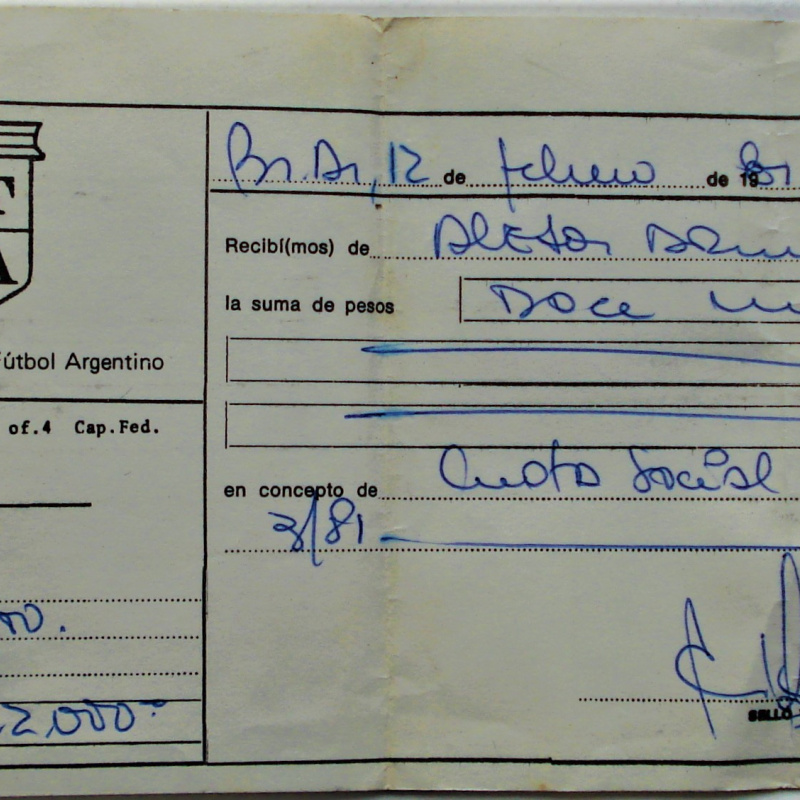 F
A
Fútbol Argentino
of.4 Cap.Fed.
2.000-
Bs.As, 12 de febrero de 1981
Recibí(mos) de
la suma de pesos Doce
en concepto de Cuota Social
3/81
SELLO